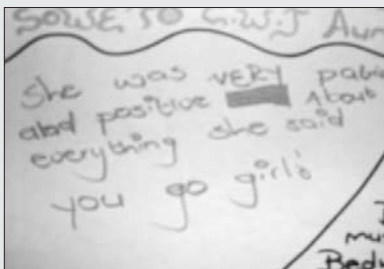 SOWETO G.W.J Aun
She was VERY pati
abd positive About
everything she said
you go girl!
mu
Bedr